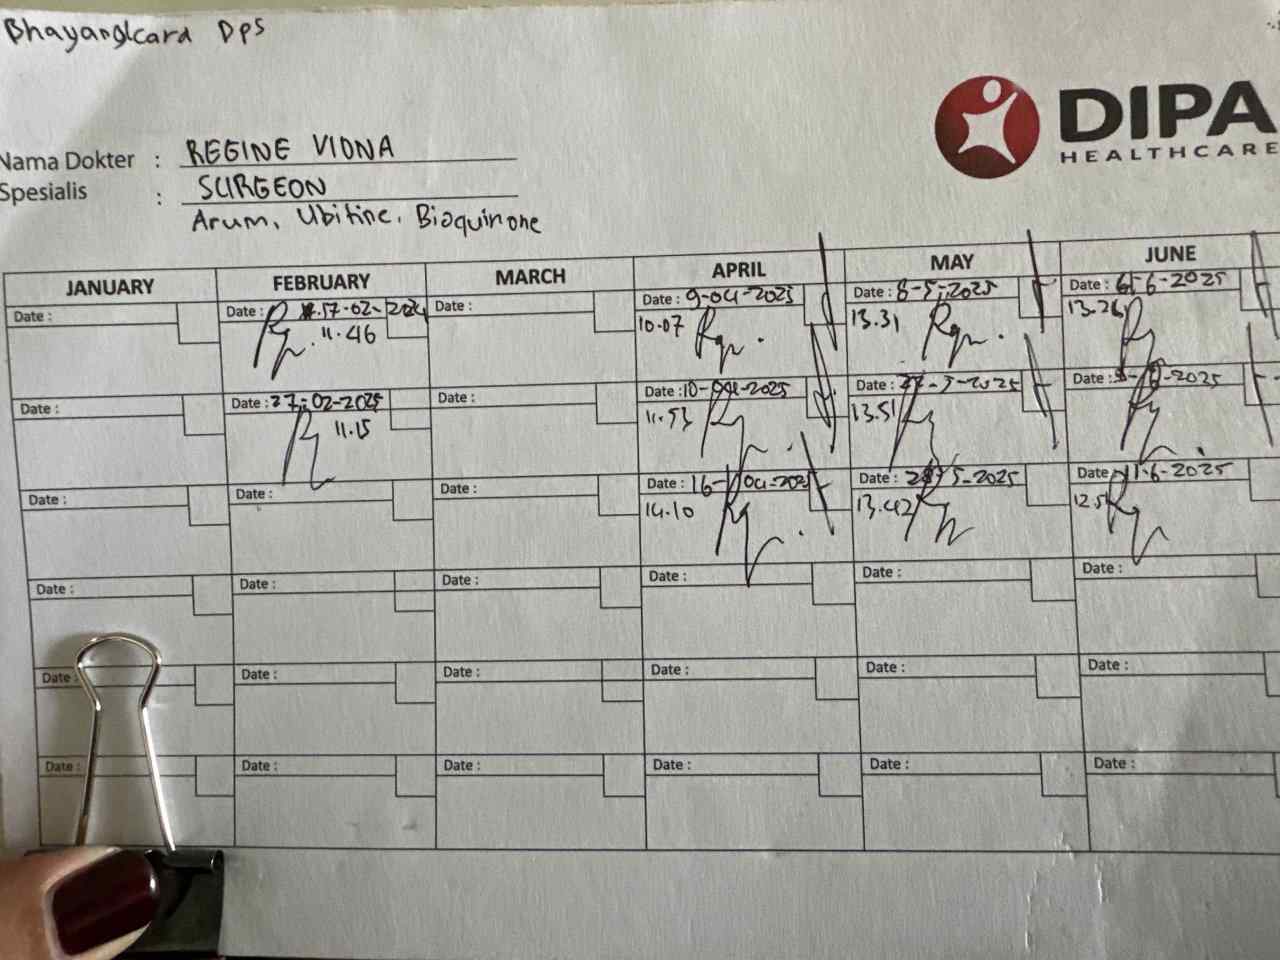 Bhayangkara DPS
DIPA
HEALTHCARE
Nama Dokter : REGINE VIONA
Spesialis : SURGEON
Arum, Ubitine, Bioquinone
JANUARY FEBRUARY MARCH APRIL MAY JUNE
Date : Date : 17-02-2024 Date : Date : 9-04-2025 Date : 8-5-2025 Date : 6-6-2025
11.46 10.07 13.31 13.26
Date : Date : 27-02-2025 Date : Date : 10-04-2025 Date : -5-2025 Date : -2025
11.15 11.53 13.51
Date : Date : Date : Date : 16-04-2025 Date : 28-5-2025 Date : 11-6-2025
14.10 13.42 12.51
Date : Date : Date : Date : Date : Date :
Date : Date : Date : Date : Date : Date :
Date : Date : Date : Date : Date : Date :